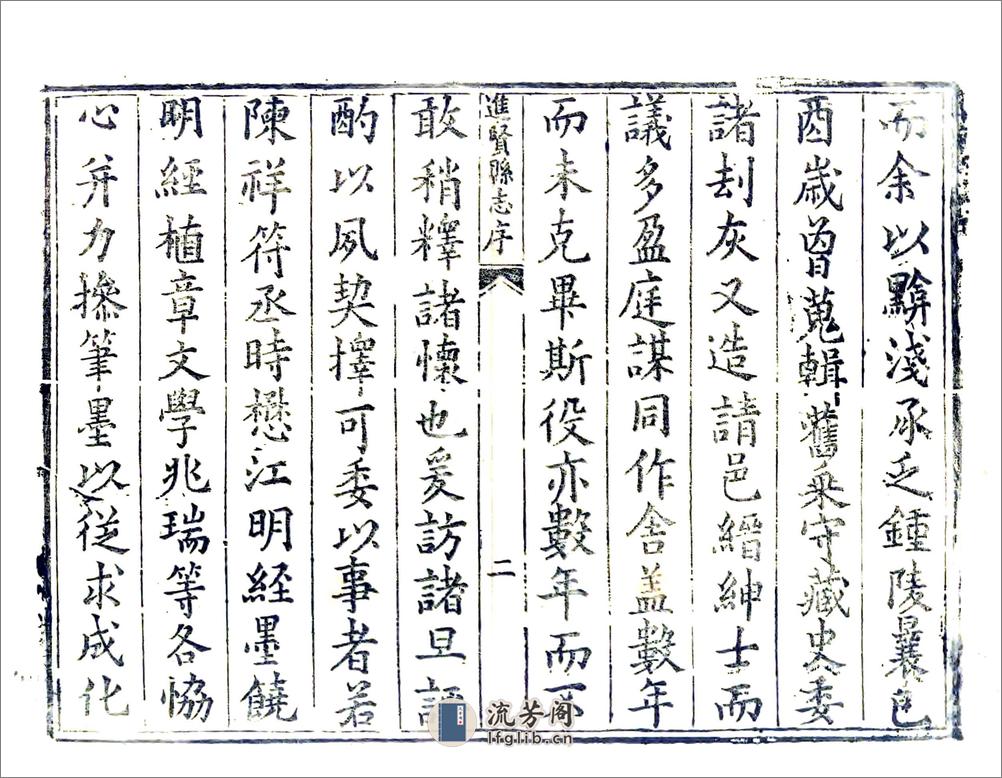 而余以黭淺承乏鍾陵曩邑
酉歲曾蒐輯舊乗守藏史委
諸刦灰又造請邑縉紳士而
議多盈庭謀同作舍盖數年
而未克畢斯役亦數年而不
進賢縣志序 二
敢稍釋諸懷也爰訪諸旦評
酌以夙契擇可委以事者若
陳祥符丞時懋江明經墨饒
明經植章文學兆瑞等各恊
心并力摻筆墨以從求成化
流芳阁
lfglib.cn